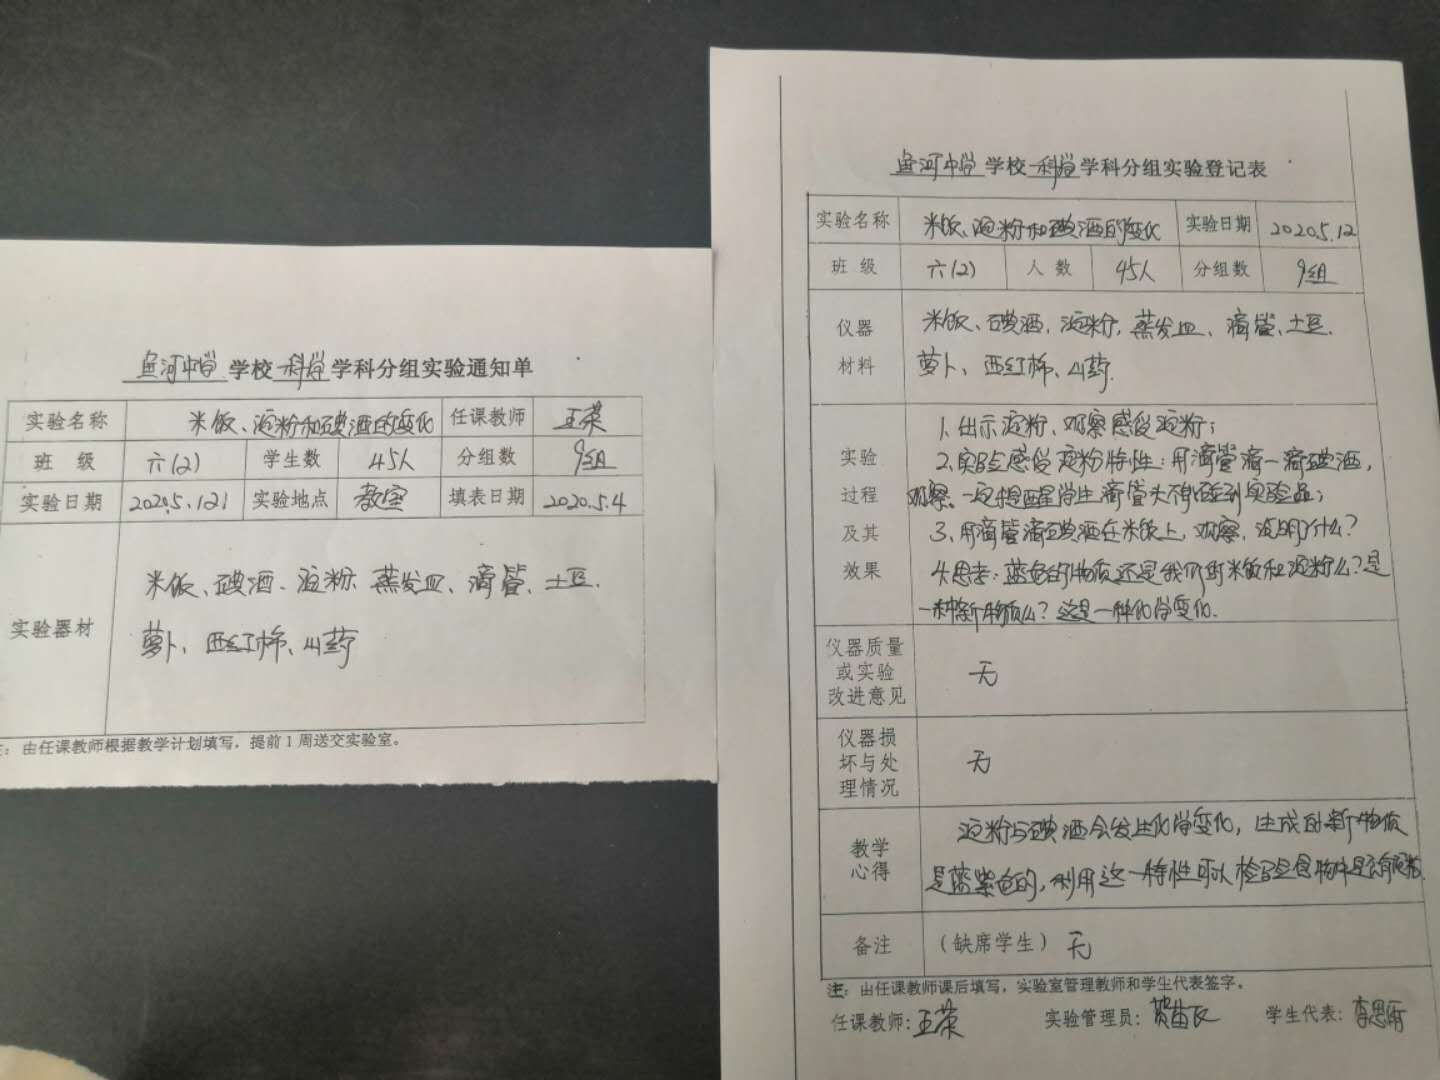 鱼河中学 学校 科学 学科分组实验通知单
实验名称 米饭、淀粉和碘酒的变化 任课教师 王荣
班 级 六(2) 学生数 45人 分组数 9组
实验日期 2020.5.121 实验地点 教室 填表日期 2020.5.4
实验器材
米饭、碘酒、淀粉、蒸发皿、滴管、土豆、
萝卜、西红柿、山药
注：由任课教师根据教学计划填写，提前1周送交实验室。
鱼河中学 学校 科学 学科分组实验登记表
实验名称 米饭、淀粉和碘酒的变化 实验日期 2020.5.12
班 级 六(2) 人 数 45人 分组数 9组
仪器材料
米饭、碘酒、淀粉、蒸发皿、滴管、土豆、
萝卜、西红柿、山药
实验过程及其效果
1、出示淀粉、观察感受淀粉；
2、实验感受淀粉特性：用滴管滴一滴碘酒，
观察。一定提醒学生滴管头不能碰到实验品；
3、用滴管滴碘酒在米饭上，观察，说明了什么？
4、思考：蓝色的物质还是我们的米饭和淀粉么？是
一种新物质么？这是一种化学变化.
仪器质量或实验改进意见 无
仪器损坏与处理情况 无
教学心得
淀粉与碘酒会发生化学变化，生成的新物质
是蓝紫色的，利用这一特性可以检验食物中是否有淀粉.
备注 （缺席学生）无
注：由任课教师课后填写，实验室管理教师和学生代表签字。
任课教师：王荣 实验管理员： 学生代表：李思雨